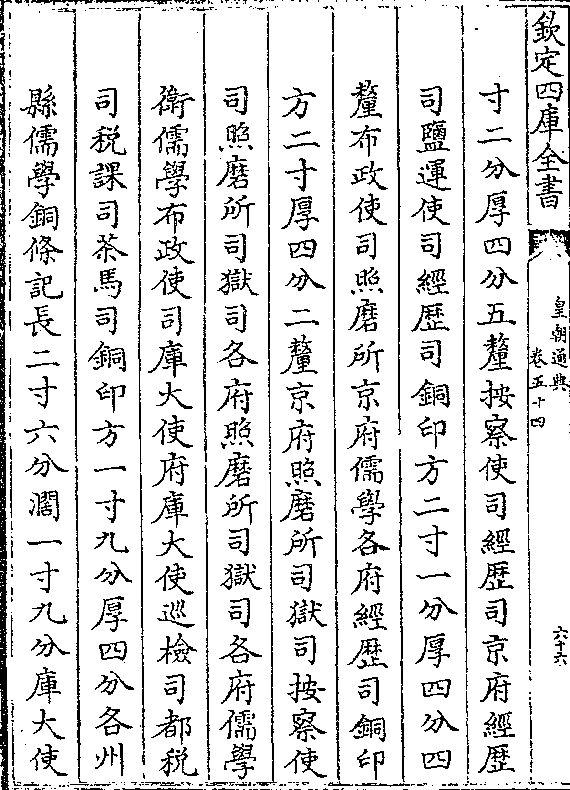 欽定四庫全書
皇朝通典
卷五十四
六十六
寸二分厚四分五釐按察使司經歷司京府經歷
司鹽運使司經歷司銅印方二寸一分厚四分四
釐布政使司照磨所京府儒學各府經歷司銅印
方二寸厚四分二釐京府照磨所司獄司按察使
司照磨所司獄司各府照磨所司獄司各府儒學
衛儒學布政使司庫大使府庫大使巡檢司都税
司税課司茶馬司銅印方一寸九分厚四分各州
縣儒學銅條記長二寸六分濶一寸九分庫大使